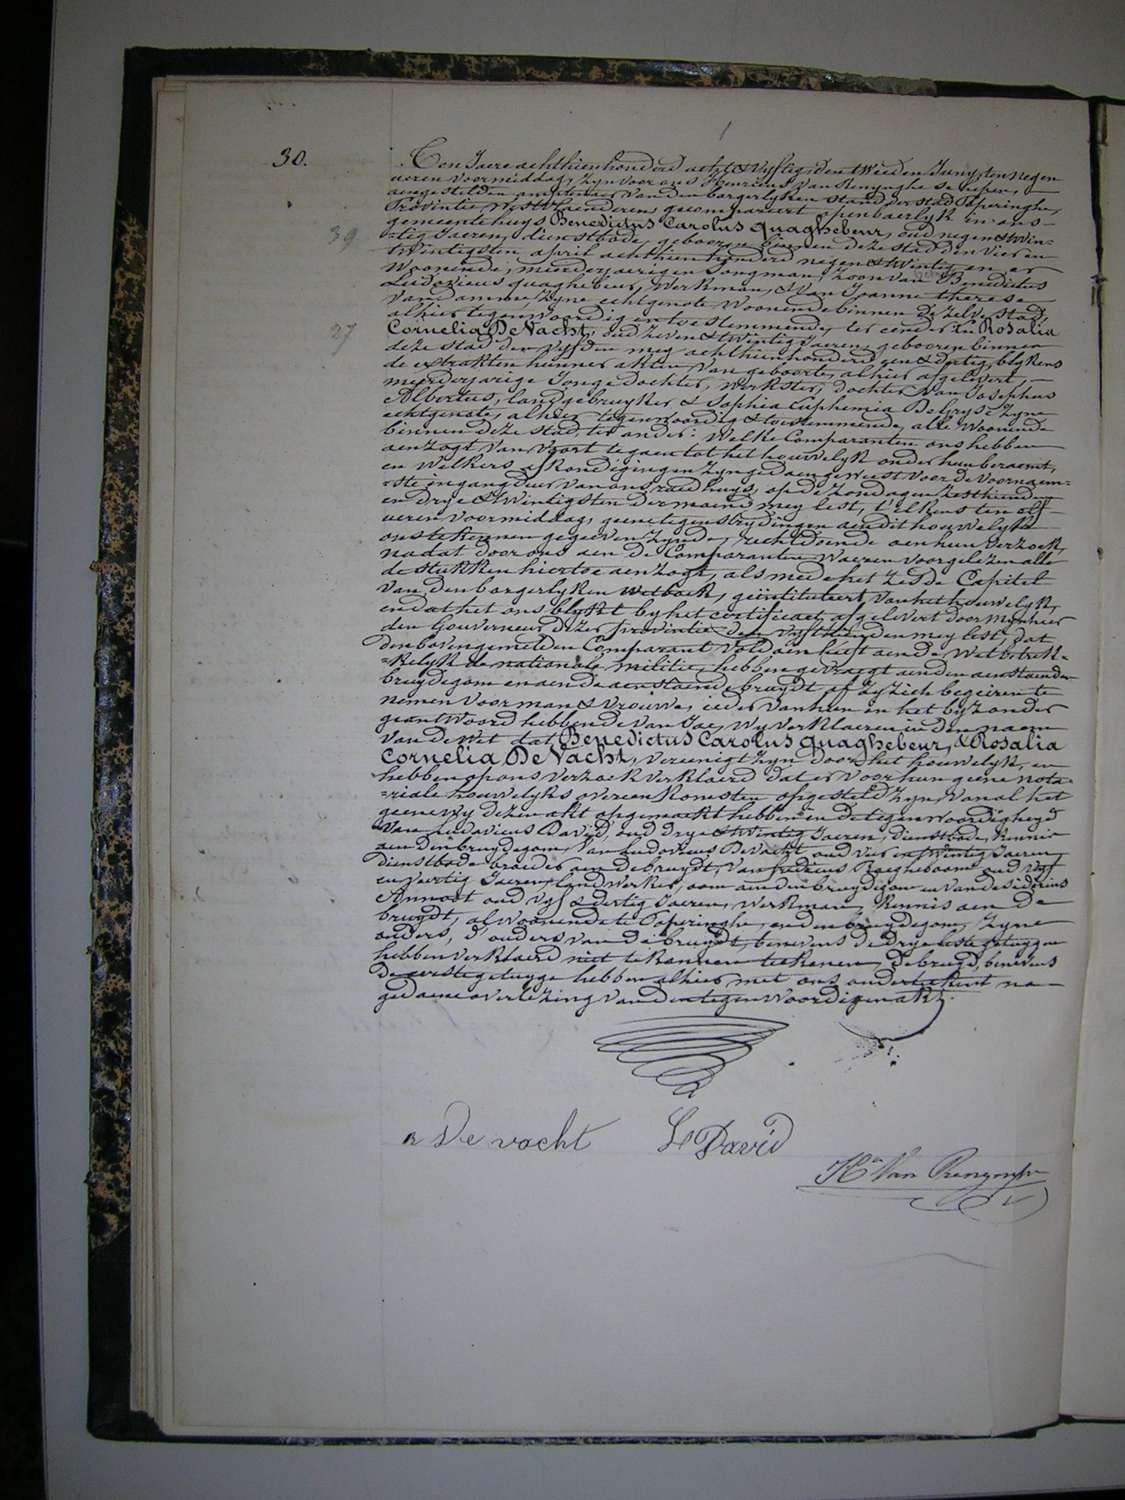 30.
Ten Jaere achthienhonderd acht & vyftig, den tweeden Juny, ten negen
ueren voormiddag, zyn voor ons Henricus Van Renynghe, schepen,
aengestelden ambtenaer van den borgerlyken stand der stad Poperinghe,
Provintie Westvlaenderen, gecompareert openbaerlyk in ons
gemeentehuys Benedictus Carolus Quaghebeur, oud negen & twin-
39
tig Jaeren, dienstbode, geboren binnen deze stad den vier en
twintigsten april achthien honderd negen & twintig en er
Woonende, meerderjaerigen Jongman, zoon van Benedictus
Ludovicus quaghebeur, werkman, & van Joanne Therese
Vandamme zyne echtgenote, Woonende binnen dezelve stad,
alhier tegenwoordig en toestemmende, ter eender zu Rosalia
27
Cornelia De Vacht, oud zeven & twintig Jaeren, geboren binnen
deze stad den vyfden mey achthienhonderd een & dertig, blykens
de extrakten hunner akten van geboorte, alhier afgelevert,
meerderjarige Jonge Dochter, werkster, dochter van Josephus
Albertus, landgebruyker & Sophia Euphemia zyne
echtgenote, alhier tegenwoordig & toestemmende, alle Woonende
binnen deze stad, ter ander: Welke Comparanten ons hebben
aenzogt van voort te gaen tot het houwelyk onder hun beraemt,
en welkers afkondigingen zyn gedaen geweest voor de voornaem-
ste ongangdeur van ons raedhuys, op de zondagen zesthienden
en drye & twintigsten der maend mey lest, t'elkens ten elf
ueren voormiddag, geene tegenstrydingen aen dit houwelyk
ons te kennen gegeven zynde, rechtdoende aen hun verzoek,
nadat door ons aen de Comparanten waeren voorgelezen alle
de stukken hiertoe aenzogt, als mede het zesde Capitel
van den borgerlyken wetboek, geïntituleert van het houwelyk,
en dat het ons blykt by het certificaet afgelevert door Mynheer
den Gouverneur dezer provintie den mey lest, dat
den bovengemelden Comparant voldaen heeft aen de wet betrek-
kelyk de nationale militie, hebben gevraegt aen den aenstaenden
bruydegom en aen de aenstaende bruydt of zy zich begeiren te
nemen voor man & vrouwe, ieder van hun in het byzonder
geantwoord hebbende van Jae, wy verklaeren in den naem
van de wet dat Benedictus Carolus Quaghebeur, & Rosalia
Cornelia De Vacht, vereenigt zyn door het houwelyk, en
hebben op ons verzoek verklaerd dat er voor hun geene nota-
riale houwelyks overeenkomsten opgesteld zyn, van al het
geene wy dezen akt opgemaekt hebben in de tegenwoordigheyd
van Ludovicus David, oud drye & twintig Jaeren, dienstbode, kennis
aen den bruydegom, van Ludovicus De Vacht oud vier en twintig Jaeren,
dienstbode broeder aen de bruydt, van oud vyf
en veertig Jaeren, landwerker, oom aen den bruydegom en van Desiderius
Annoot oud vyf & dertig Jaeren, werkman, kennis aen de
bruydt, al woonende te Poperinghe, en den bruydegom, zyne
ouders, d'ouders van de bruydt, benevens de drye leste getuygen
hebben verklaerd niet te kunnen teekenen, de bruyd, benevens
de eerste getuyge hebben alhier met ons onderteekent na
gedaene overlezing van den tegenwoordigen akt.
R De vacht L David
Hri Van Renynghe